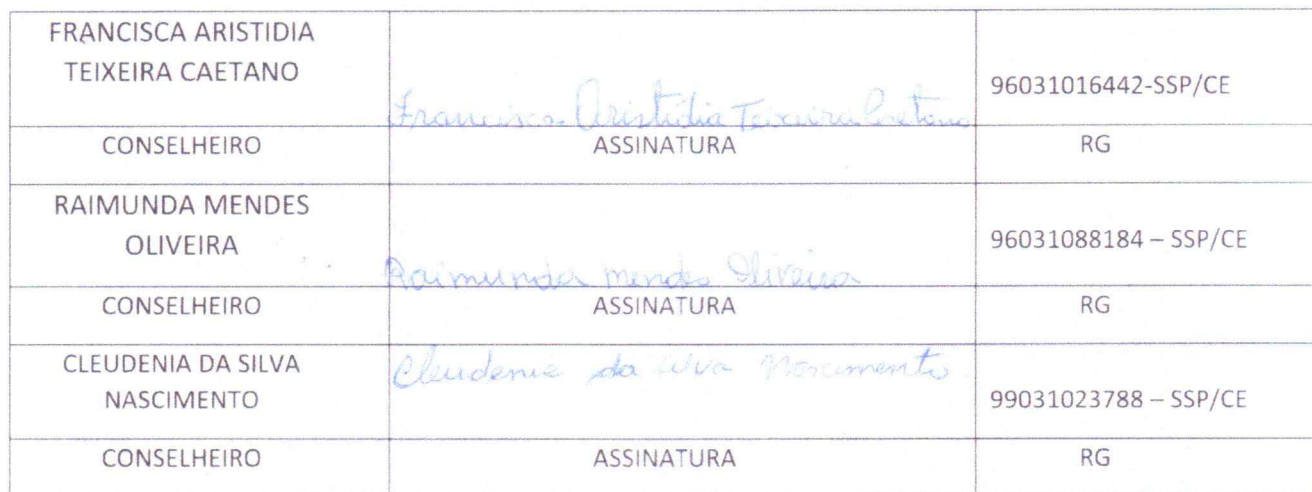 FRANCISCA ARISTIDIA
TEIXEIRA CAETANO
Francisca Aristidia Teixeira Caetano
96031016442-SSP/CE
CONSELHEIRO ASSINATURA RG
RAIMUNDA MENDES
OLIVEIRA
Raimunda Mendes Oliveira
96031088184 – SSP/CE
CONSELHEIRO ASSINATURA RG
CLEUDENIA DA SILVA
NASCIMENTO
Cleudenia da Silva Nascimento
99031023788 – SSP/CE
CONSELHEIRO ASSINATURA RG